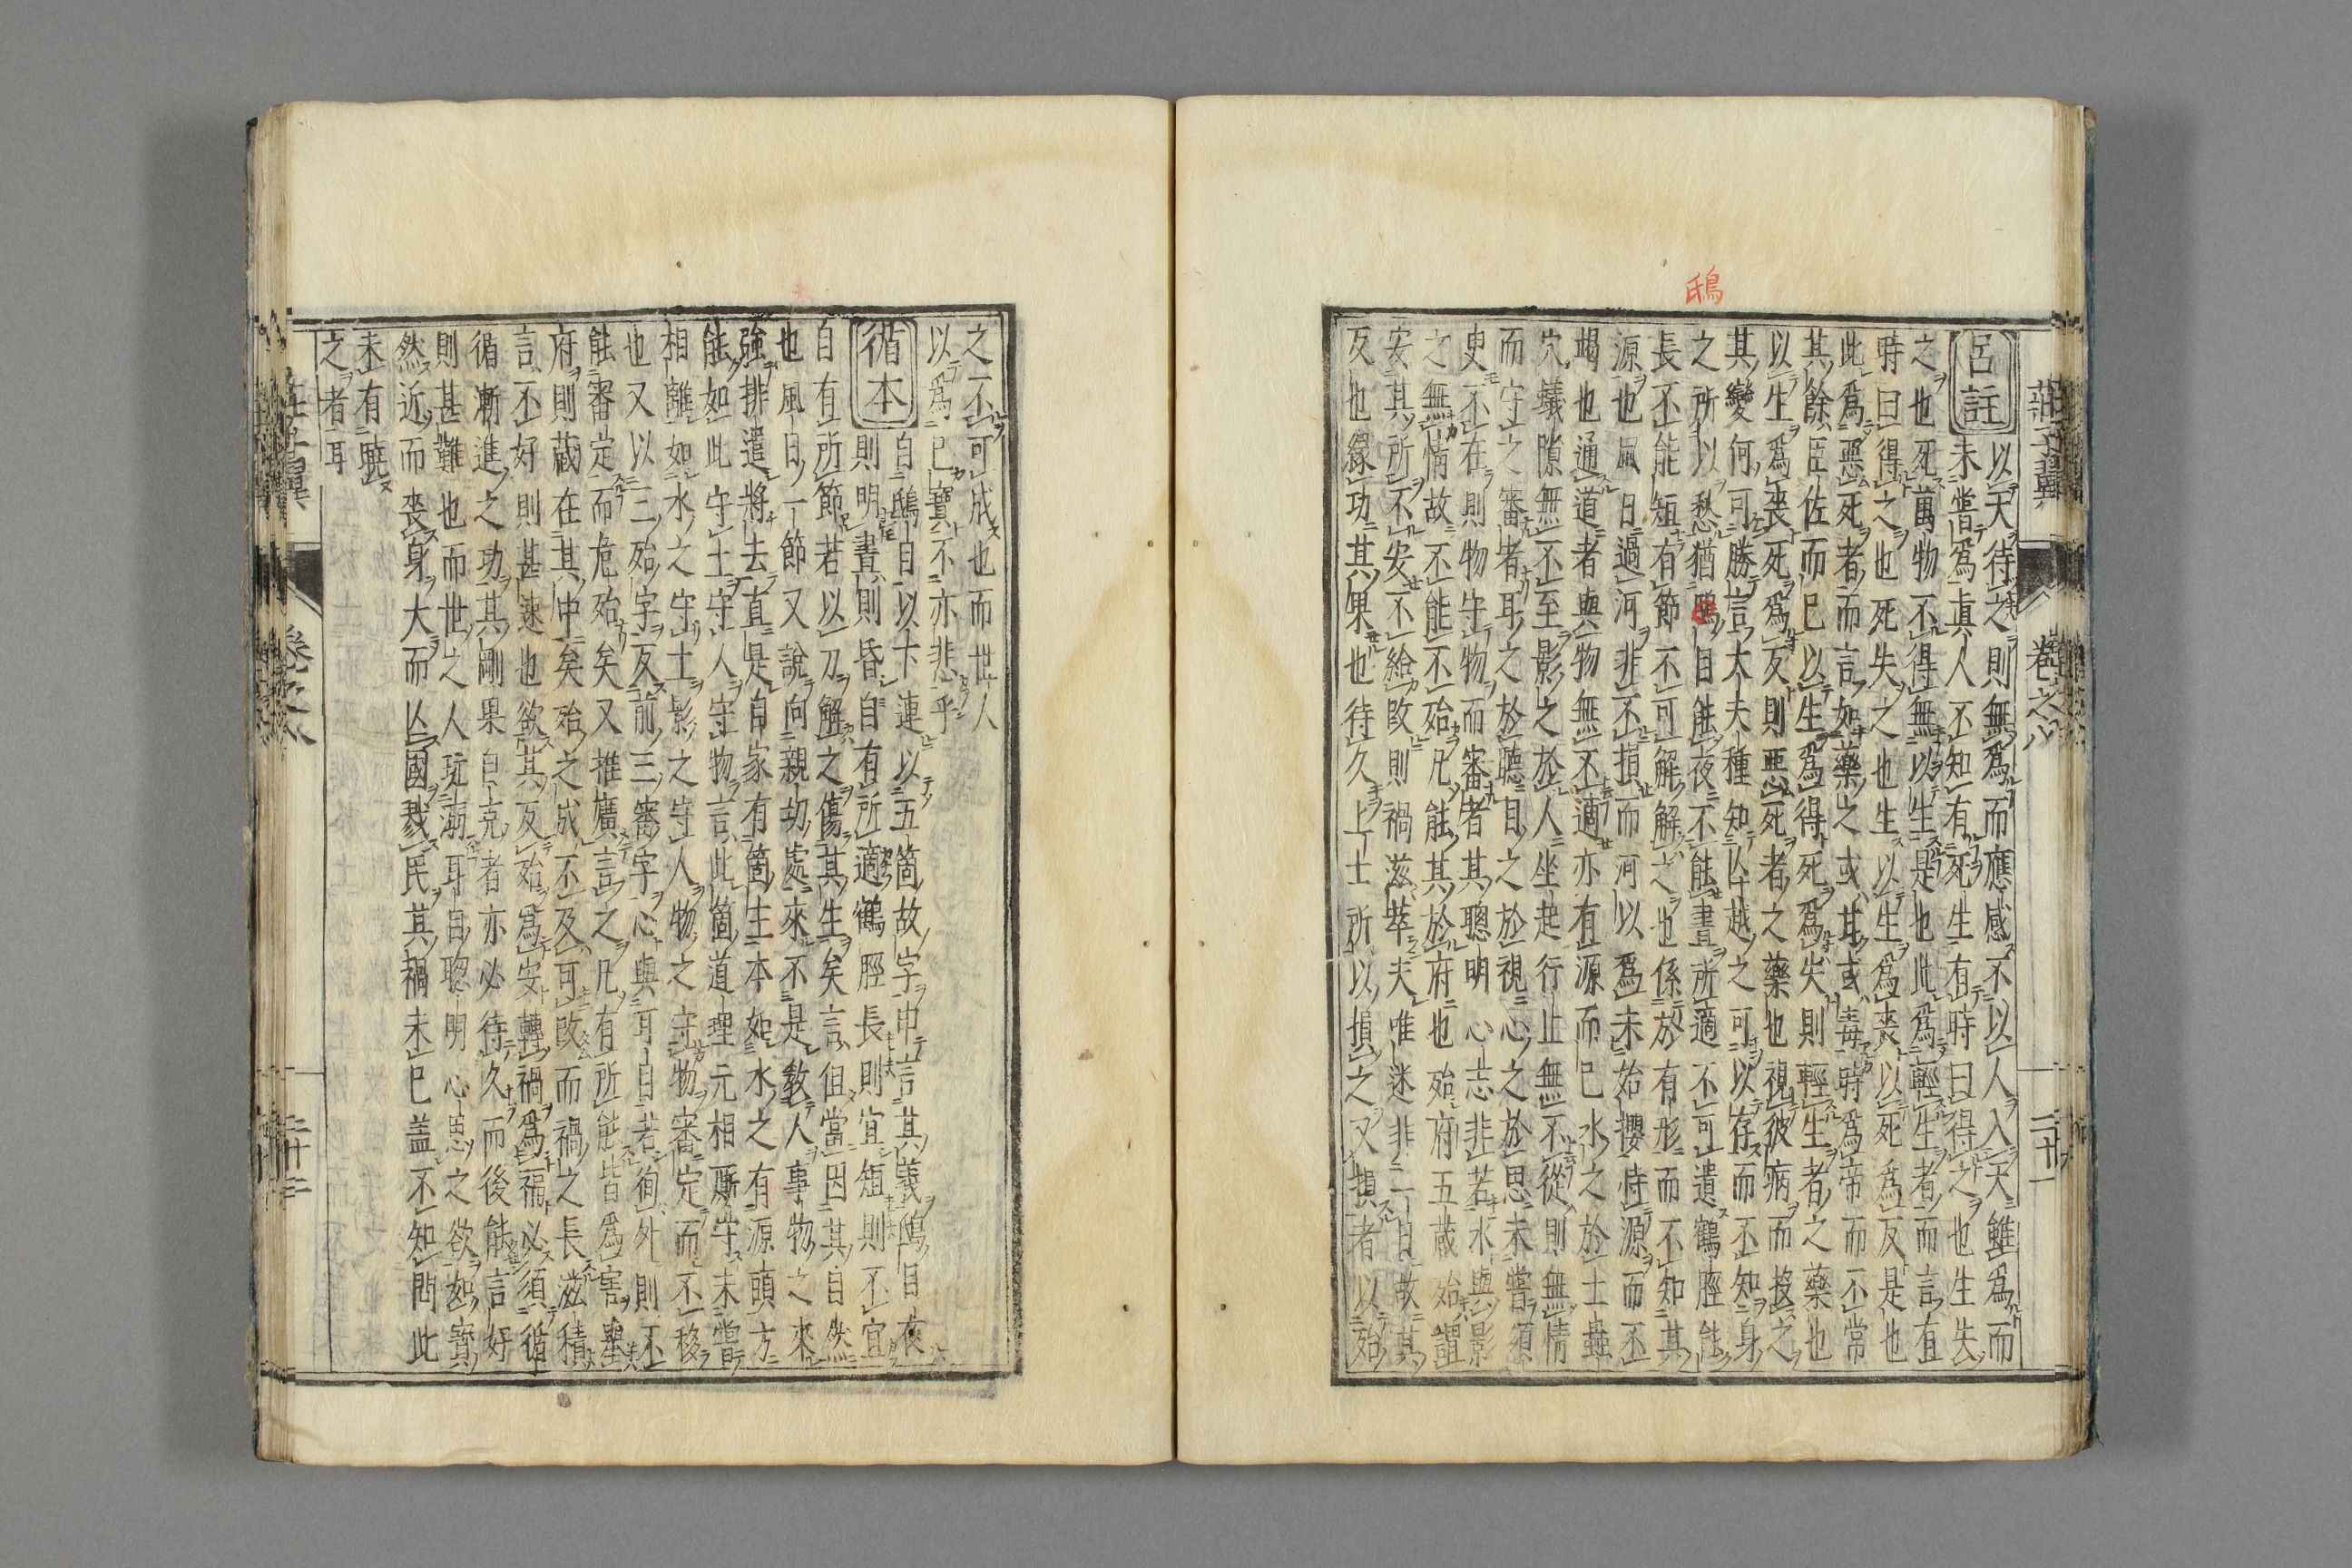 鴟
莊子翼 卷之八 二十一
呂註
以天待之則無爲而應感不以人入天雖爲而
未嘗爲眞人不知有死生有時曰得之也生失
之也死萬物不得無以生是也此爲輕生者而言有
時曰得之也死失之也生以生爲喪以死爲反是也
此爲惡死者而言如藥之或其或毒時爲帝而不常
其餘臣佐而已以生爲得死爲失則輕生者之藥也
以生爲喪死爲反則惡死者之藥也視彼病而投之
其變何可勝言大夫種知亾越之可以存而不知身
之所以愁猶鴟目能夜不能晝所適不可遺鶴脛能
長不能短有節不可解解之也係於有形而不知其
源也風日過河非不損而河以爲未始攖恃源而不
竭也通道者與物無不適亦有源而已水之於土蟲
穴蟻隙無不至影之於人坐起行止無不從則無情
而守之審者耳之於聽目之於視心之於思未嘗須
史不在則物守物而審者其聰明心志非若水與影
之無情故不能不殆凡能其於府也殆府五藏殆謂
安其所不安不給改則禍滋萃夫唯迷非一日故其
反也緣功其果也待久上士所以損之又損者以殆
之不可成也而世人
以爲已寶不亦悲乎
循本
自鴟目以下連以五箇故字申言其義鴟目夜
則明晝則昏自有所適鶴脛長則宜短則不宜
自有所節若以刀解之傷其生矣言但當因其自然
也風日一節又說向親切處來不是教人事物之來
強排遣將去直是自家有箇主本如水之有源頭方
能如此守土守人守物言此箇道理元相厮守未嘗
相離如水之守土影之守人物之守物審定而不移
也又以三殆字反前三審字心與耳目若徇外則不
能審定而危殆矣又推廣言之凡有所能皆爲害壘
府則藏在其中矣殆之成不及可改而禍之長滋積
言不好則甚速也欲其反殆爲安轉禍爲福必須循
循漸進之功其剛果自克者亦必待久而後能言好
則甚難也而世之人玩溺耳目聰明心思之欲如寶
然近而喪身大而亾國戮民其禍未已蓋不知問此
未有曉
之者耳
莊子翼 卷之八 二十二